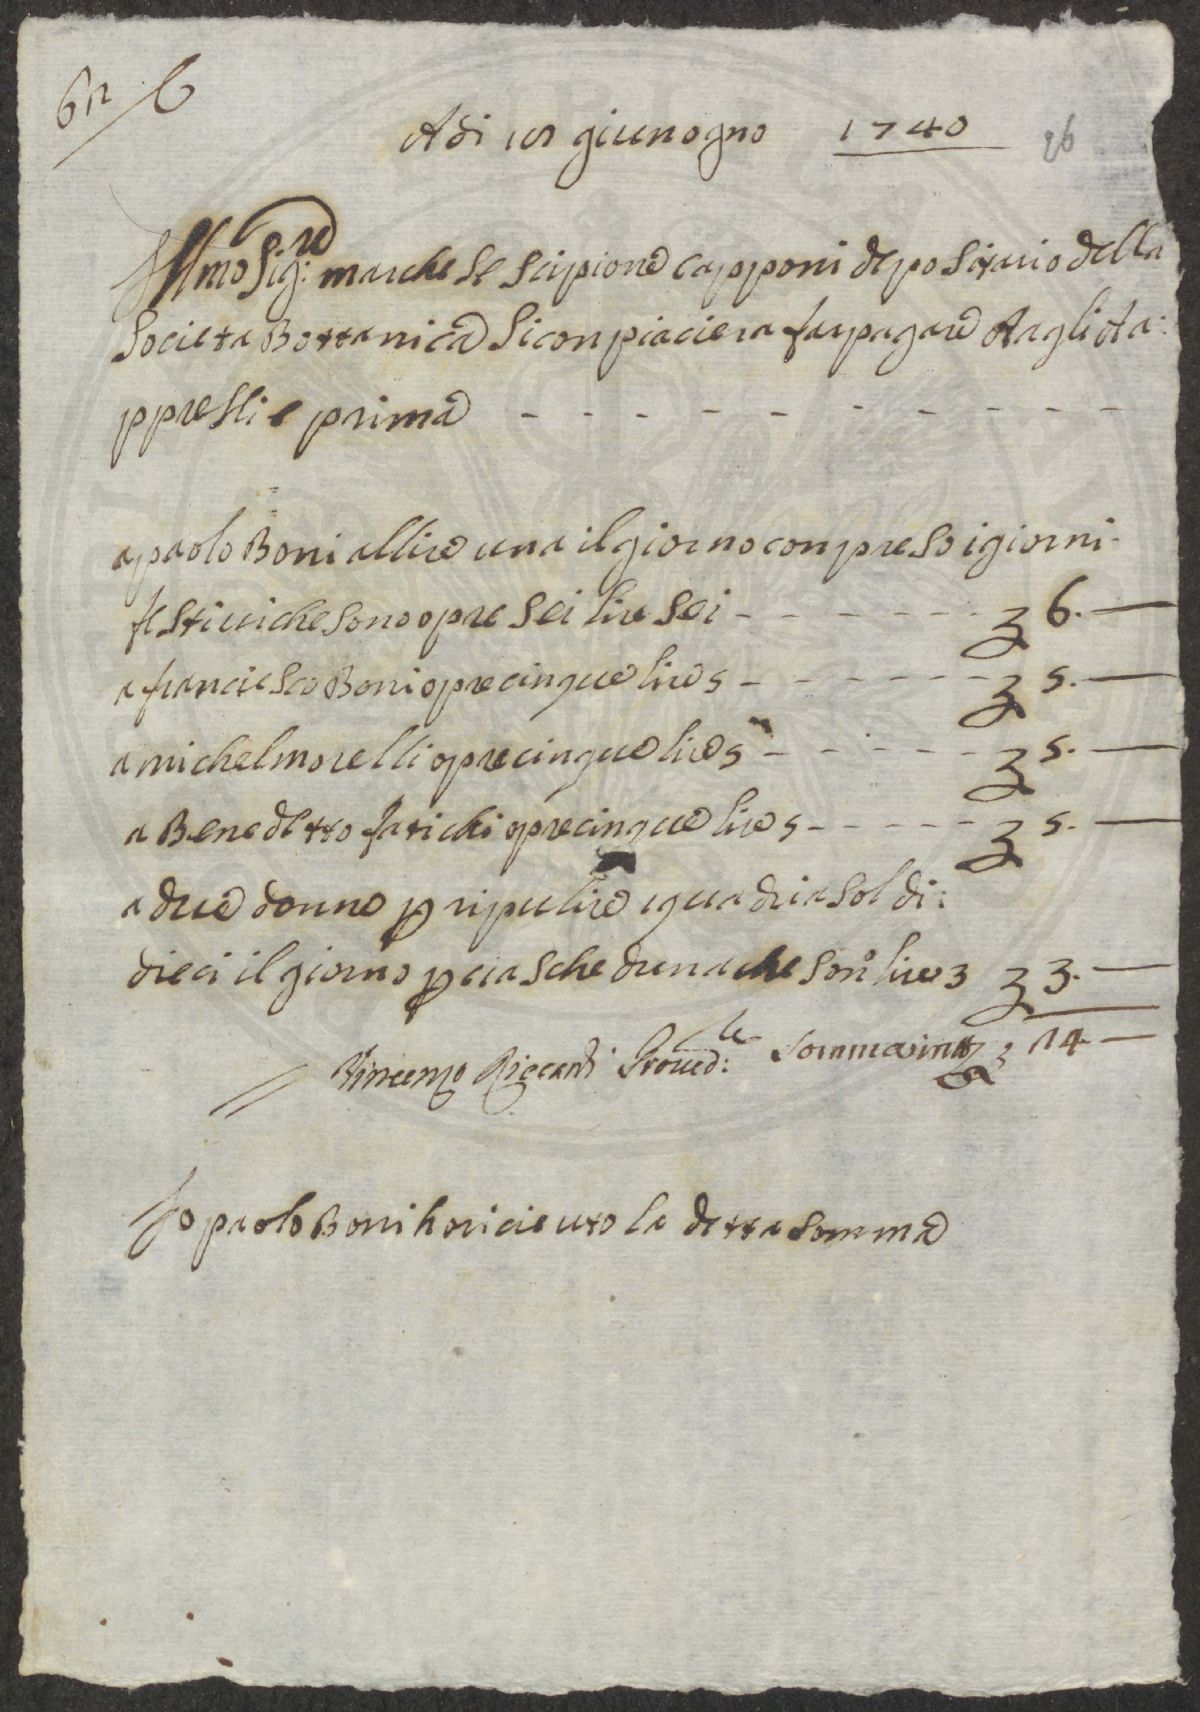 Adi 18 giunogno 1740
26
Illmo Sig:re marchese Scipione Capponi depositario della
Societta Bottanica Si conpiaciera far pagare Aagli Aa:
ppresSi e prima - - - - - - - - - -
a paolo Boni allire una il giorno conpreso i giorni
festiui che sono opre sei lire sei - - - - - 6. —
a franciesco Boni opre cinque lire 5 - - - - - 5. —
a michel morelli opre cinque lire 5 - - - - - 5. —
a Benedetto fatichi opre cinque lire 5 - - - - - 5. —
a due donne p ripulire i quadri a soldi:
dieci il giorno p ciascheduna che sono lire 3 3. —
Vincenzo Riccardi Proued:le Somma in tt 14 —
Jo paolo Boni ho riceuto la detta somma